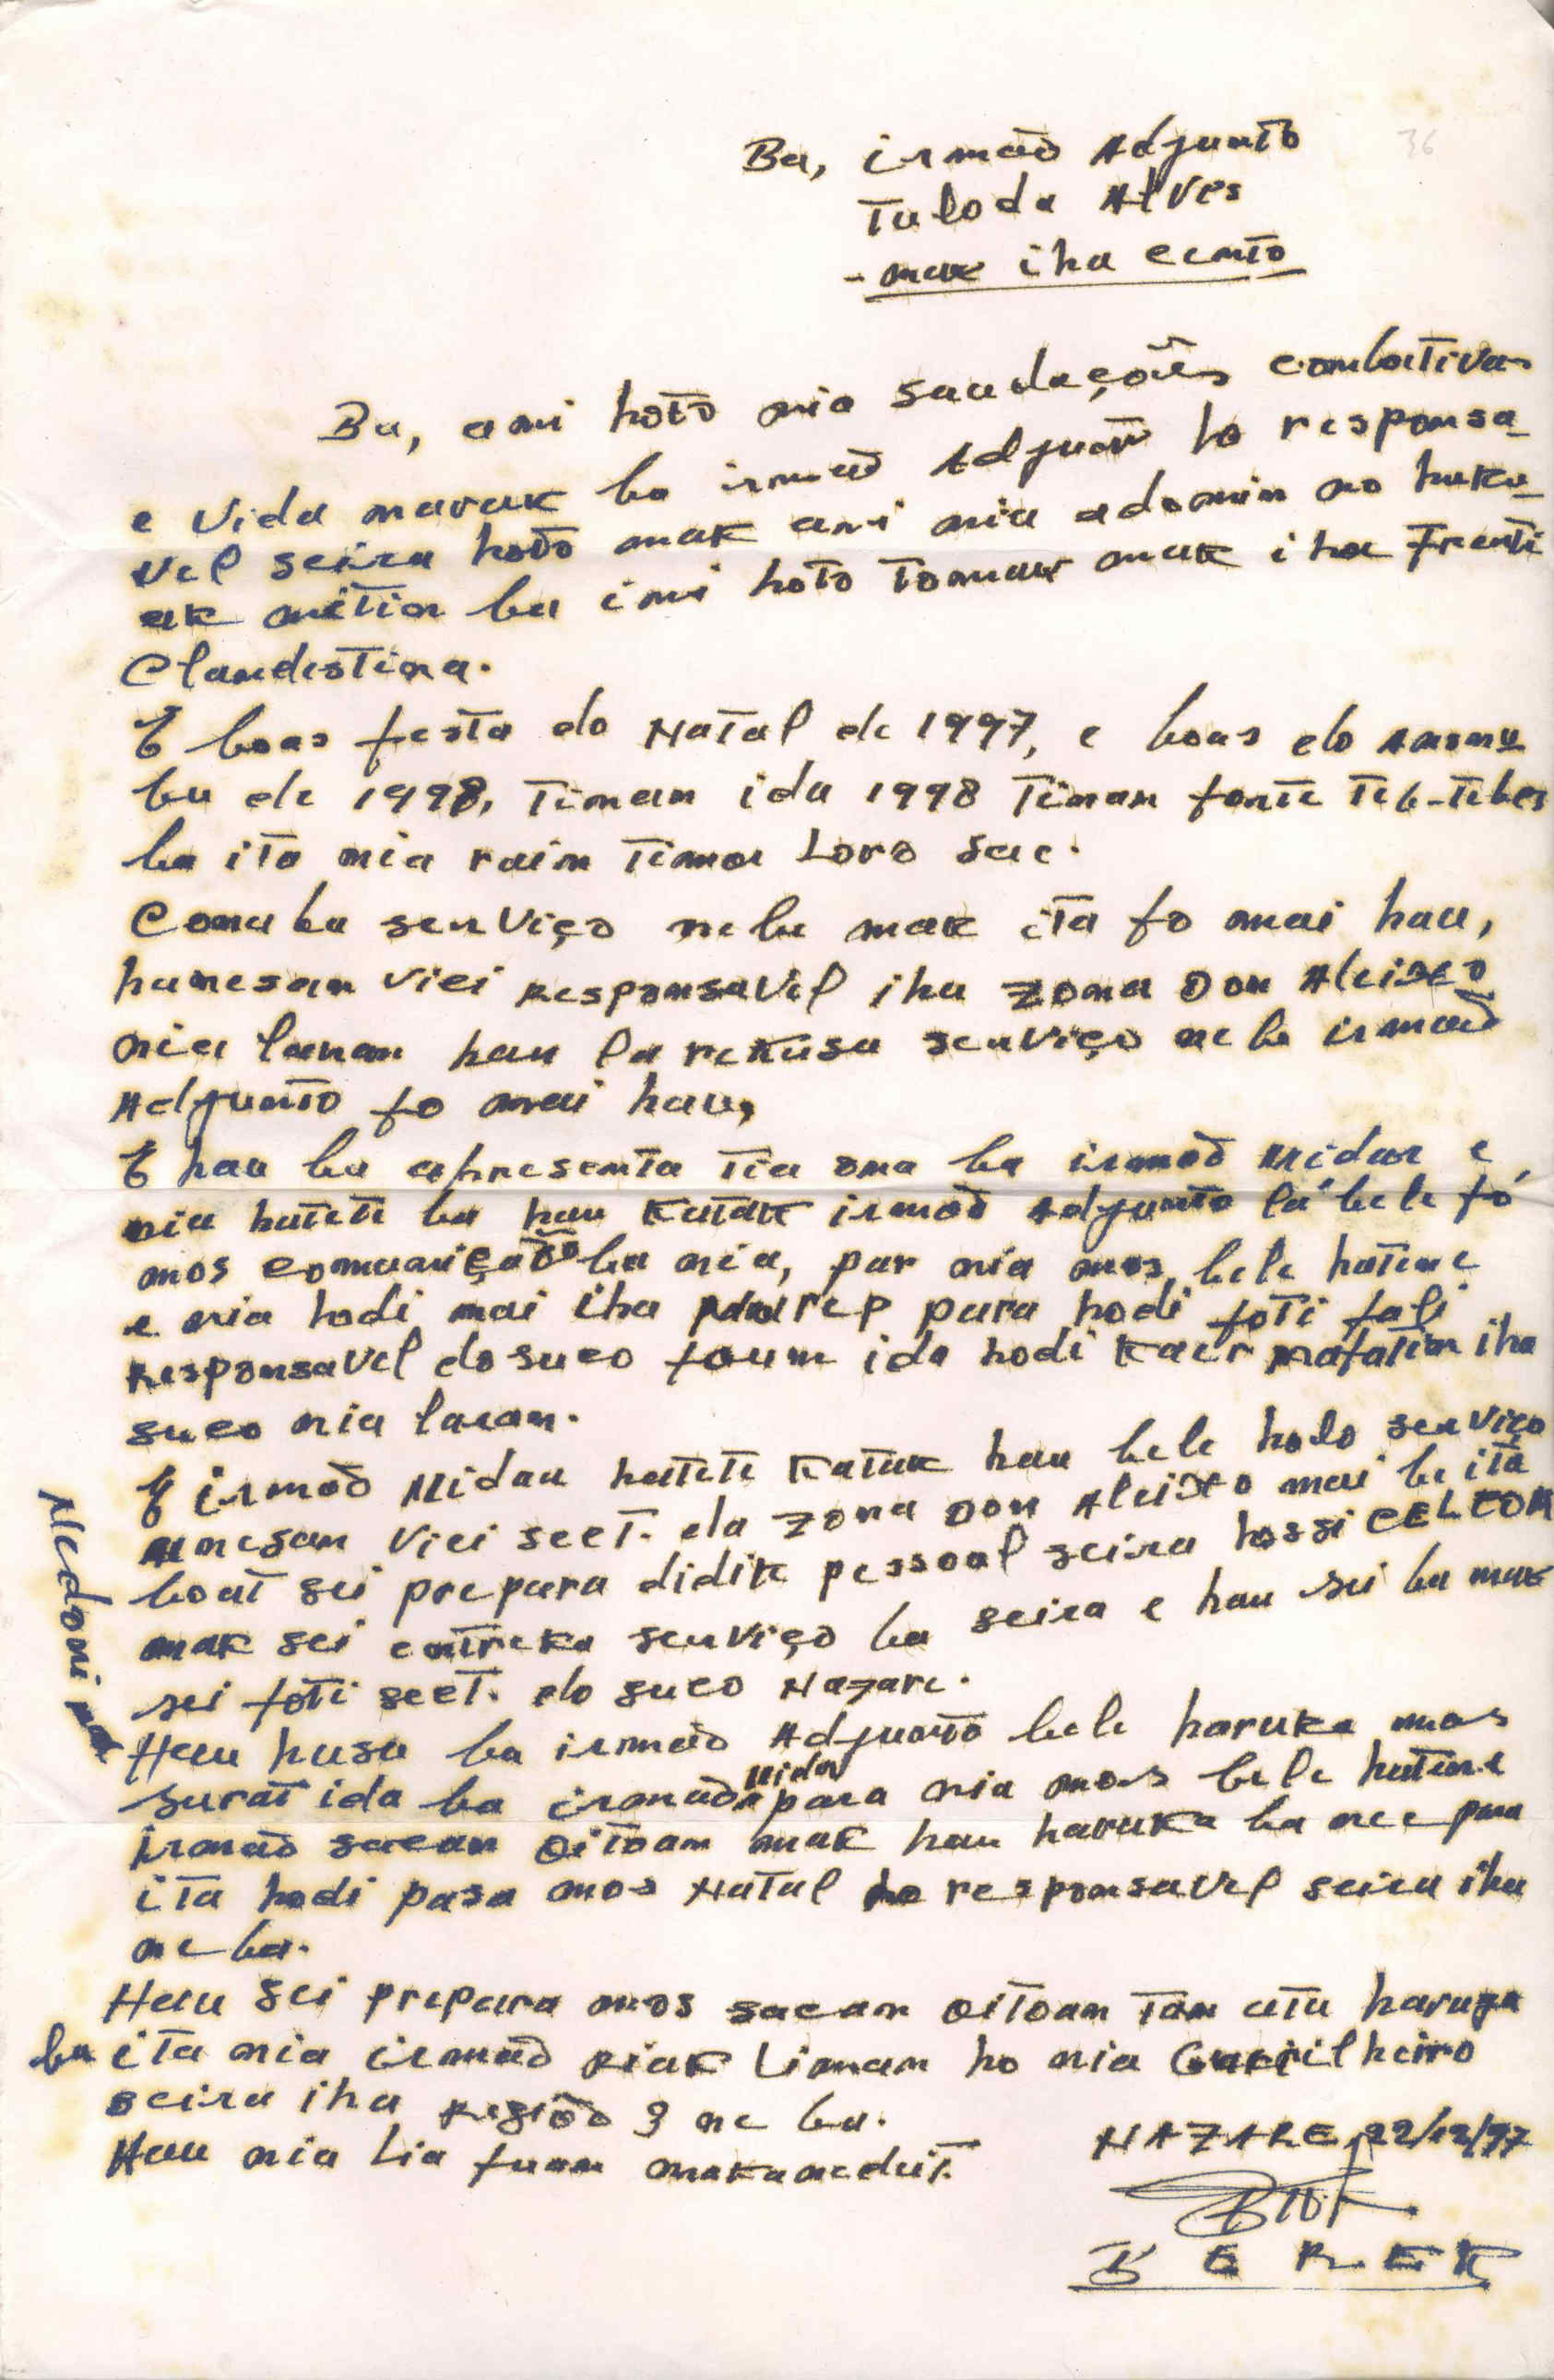 36
Ba, irmaõ Adjunto
Tuloda Alves
- mak iha canto
Ba, ami hoto nia saudações combativas
e vida naruk ba irmaõ Adjunto ho responsa-
vel seira hoto mak ami nia adomin no haku-
ak metin ba imi hoto tomak mak iha Frenti
Clandestina.
E boas festa do Natal de 1997, e boas do Annu
bu de 1998, Tinan ida 1998 Tinan forte Teb-Tebes
ba ita nia rain Timor Loro Sae.
Cona ba serviço nebe mak ita fo mai hau,
hanesan vici responsavel iha zona Don Aleixo
nia laran hau la rekusa serviço nebe irmaõ
Adjunto fo mai hau,
E hau ba apresenta tia ona ba irmaõ Midar e
nia hateti ba hau katak irmaõ Adjunto la' bele fó
mos comunicação ba nia, par nia mos bele hatene
e nia hodi mai iha para hodi foti fali
responsavel do suco foun ida hodi kaer mafatin iha
suco nia laran.
E irmaõ Midar hateti katak hau bele halo serviço
nunesan vici secT. da zona Don Aleixo mai be ita
boat sei prepara didik pessoal seira hossi CELCOM
mak sei entreka serviço ba seira e hau sei ba mak
sei foti secT. do suco Nazare.
Nedoni mak
Hau husu ba irmaõ Adjunto bele haruka mos
surat ida ba irmaõ Midar para nia mos bele hatene
irmaõ sacan oitoan mak hau haruka ba nee para
ita hodi pasa mos Natal ho responsavel seira iha
neba.
Hau sei prepara mos sacan oitoan tan atu haruka
ba ita nia irmaõ Riak Liman ho nia Guerrilheiro
seira iha Regiaõ 3 ne ba.
Hau nia Lia fuan maka nedeit.
NAZARE, 22/12/97
BEREK